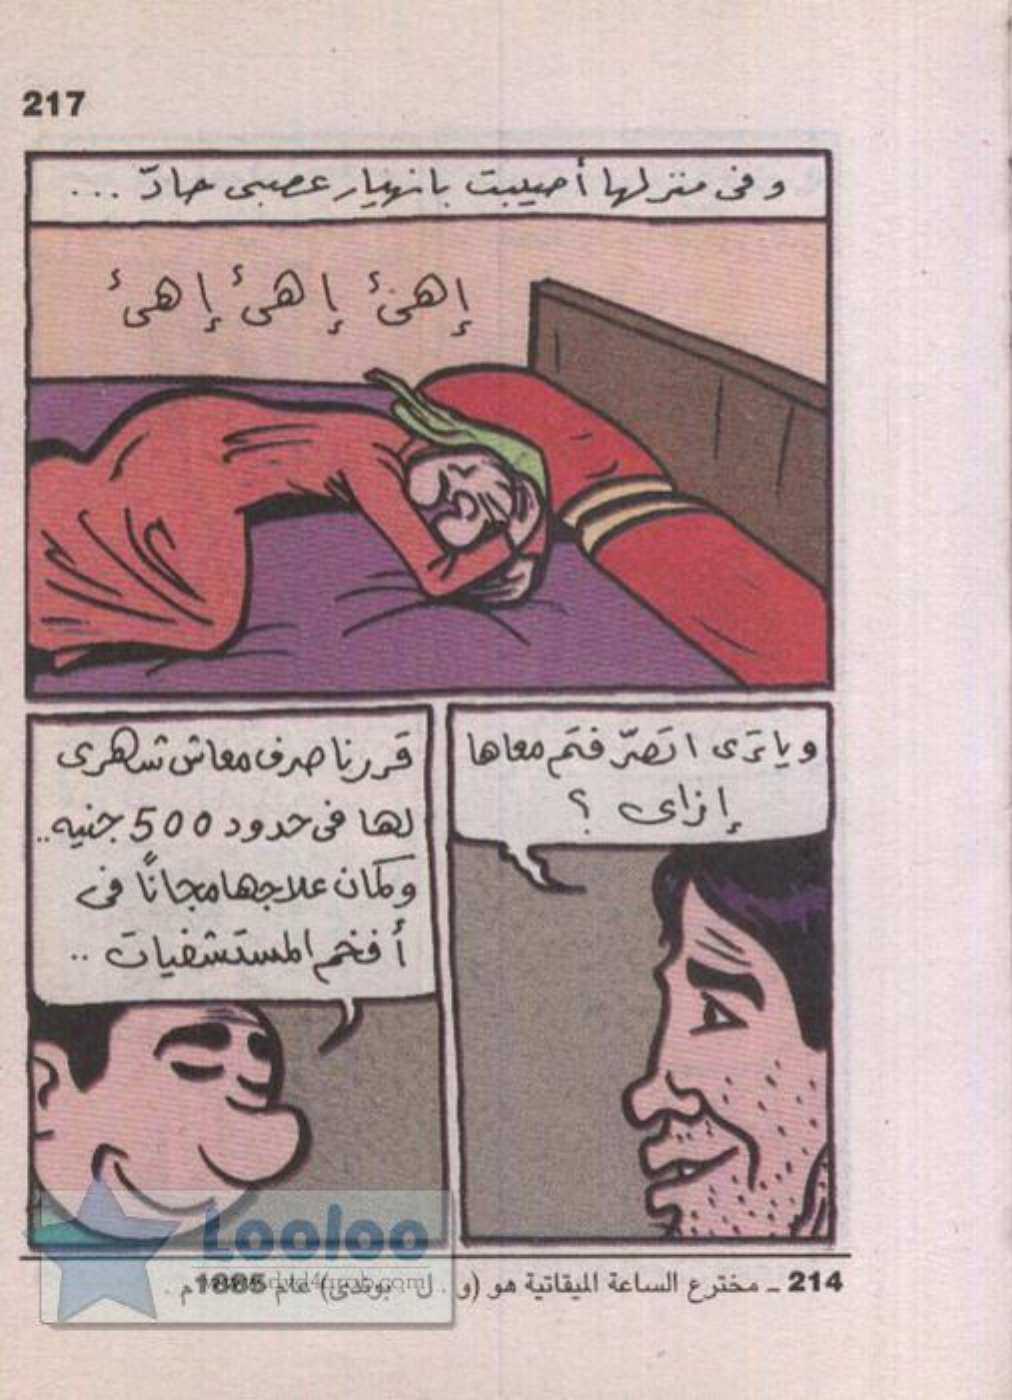 217
وفى منزلها أصيبت بانهيار عصبى حادّ ...
إهئ إهئ إهئ
وياترى اتصرّفتم معاها
إزاى ؟
قررنا صرف معاش شهرى
لها فى حدود 500 جنيه..
وكمان علاجها مجانًا فى
أفخم المستشفيات ..
Looloo
214 ـ مخترع الساعة الميقاتية هو (و . ل . بوندى) عام 1885م .